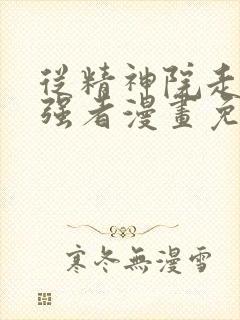 從精神院走
强者漫畫免
寒冬無漫雪